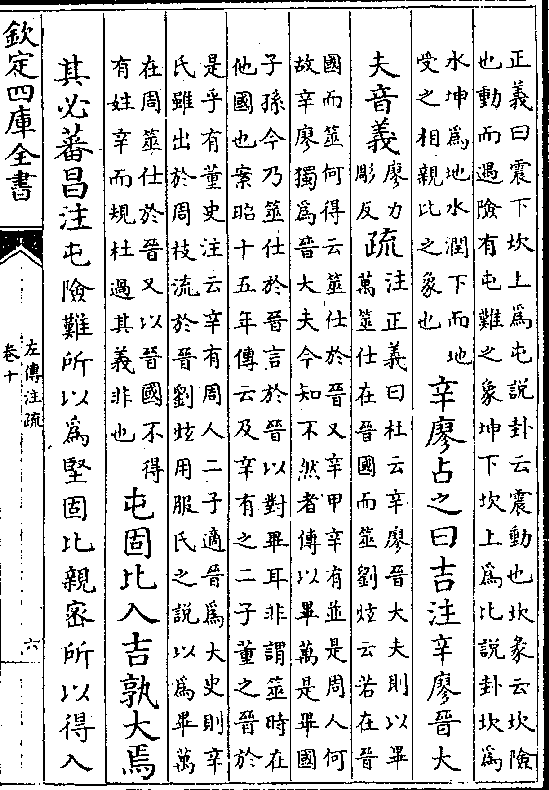 正義曰震下坎上為屯説卦云震動也坎彖云坎險
也動而遇險有屯難之象坤下坎上為比説卦坎為
水坤為地水潤下而地
受之相親比之象也
辛廖占之曰吉注辛廖晉大
夫音義
廖力
彫反
疏
注正義曰杜云辛廖晉大夫則以畢
萬筮仕在晉國而筮劉炫云若在晉
國而筮何得云筮仕於晉又辛甲辛有並是周人何
故辛廖獨為晉大夫今知不然者傳以畢萬是畢國
子孫今乃筮仕於晉言於晉以對畢耳非謂筮時在
他國也案昭十五年傳云及辛有之二子董之晉於
是乎有董史注云辛有周人二子適晉為大史則辛
氏雖出於周枝流於晉劉炫用服氏之説以為畢萬
在周筮仕於晉又以晉國不得
有姓辛而規杜過其義非也
屯固比入吉孰大焉
其必蕃昌注屯險難所以為堅固比親密所以得入
欽定四庫全書
左傳注疏
卷十
六